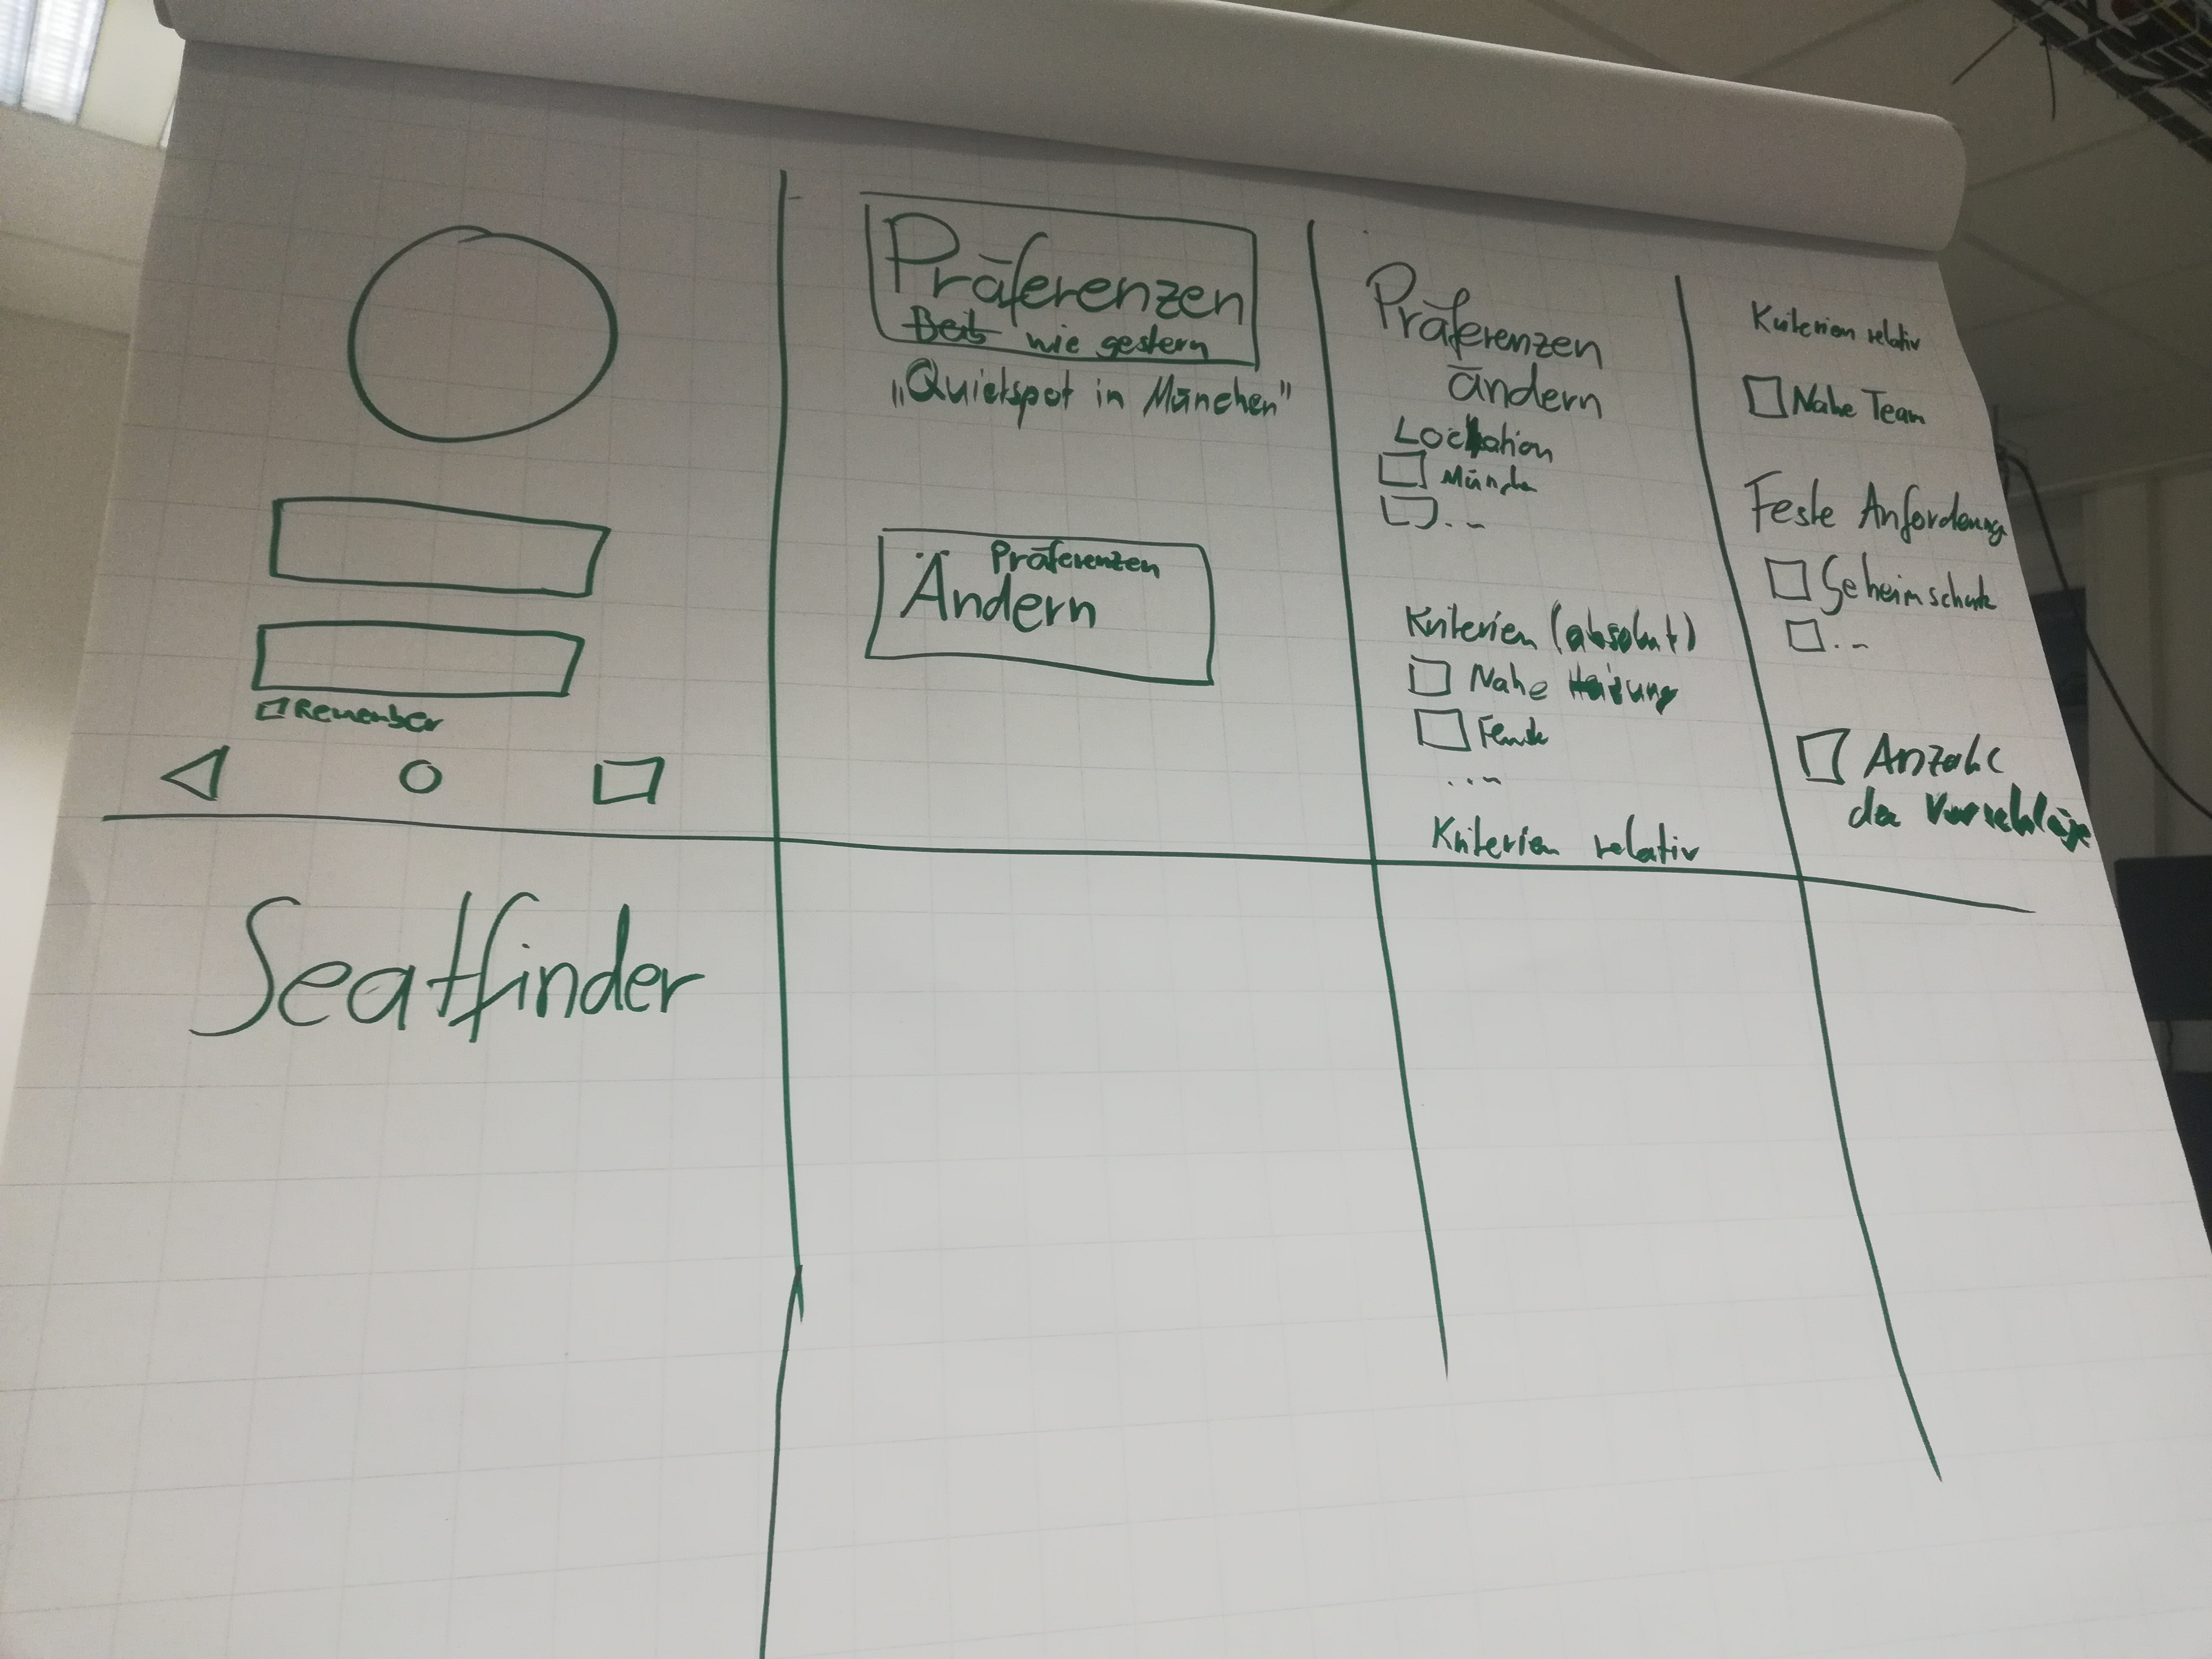 Remember
Seatfinder
Präferenzen
wie gestern
„Quietspot in München"
Präferenzen
Ändern
Präferenzen
ändern
Location
...
Kriterien (absolut)
Nahe Heizung
...
Kriterien relativ
Kriterien relativ
Nahe Team
Feste Anforderung
Geheimschutz
...
Anzahl
der Vorschläge